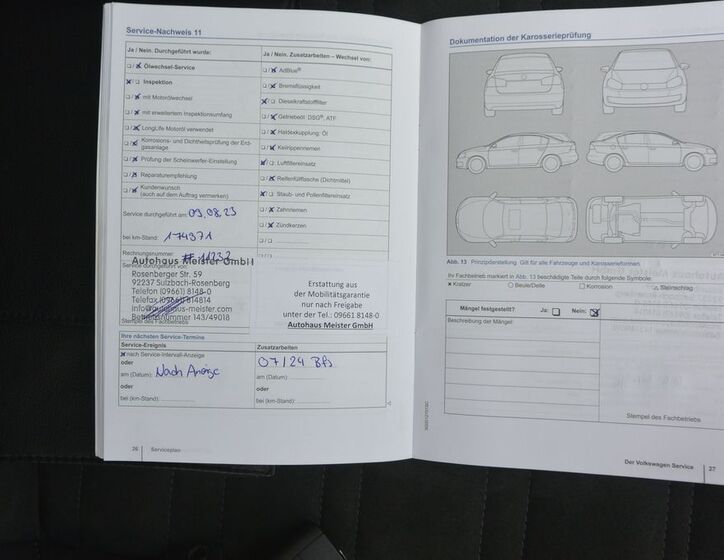 Service-Nachweis 11
Ja / Nein. Durchgeführt wurde:
Ölwechsel-Service
Inspektion
mit Motorölwechsel
mit erweitertem Inspektionsumfang
LongLife Motoröl verwendet
Korrosions- und Dichtheitsprüfung der Erd-
gasanlage
Prüfung der Scheinwerfer-Einstellung
Reparaturempfehlung
Kundenwunsch
(auch auf dem Auftrag vermerken)
Service durchgeführt am: 03.08.23
bei km-Stand: 174371
Rechnungsnummer:
Autohaus Meister GmbH
Rosenberger Str. 59
92237 Sulzbach-Rosenberg
Telefon (09661) 8148-0
Telefax (09661) 814814
info@autohaus-meister.com
Betriebsnummer 143/49018
Stempel des Fachbetriebs
Ja / Nein. Zusatzarbeiten – Wechsel von:
AdBlue®
Bremsflüssigkeit
Dieselkraftstofffilter
Getriebeöl: DSG®, ATF
Haldexkupplung: Öl
Keilrippenriemen
Luftfiltereinsatz
Reifenfüllflasche (Dichtmittel)
Staub- und Pollenfiltereinsatz
Zahnriemen
Zündkerzen
Erstattung aus
der Mobilitätsgarantie
nur nach Freigabe
unter der Tel.: 09661 8148-0
Autohaus Meister GmbH
Ihre nächsten Service-Termine
Service-Ereignis
nach Service-Intervall-Anzeige
oder
am (Datum): Nach Anzeige
oder
bei (km-Stand):
Zusatzarbeiten
07/24 Bfs
am (Datum):
oder
bei (km-Stand):
26 Serviceplan
Dokumentation der Karosserieprüfung
Abb. 13 Prinzipdarstellung. Gilt für alle Fahrzeuge und Karosserieformen.
Ihr Fachbetrieb markiert in Abb. 13 beschädigte Teile durch folgende Symbole:
Kratzer Beule/Delle Korrosion Steinschlag
Mängel festgestellt? Ja: Nein:
Beschreibung der Mängel:
Stempel des Fachbetriebs
Der Volkswagen Service 27